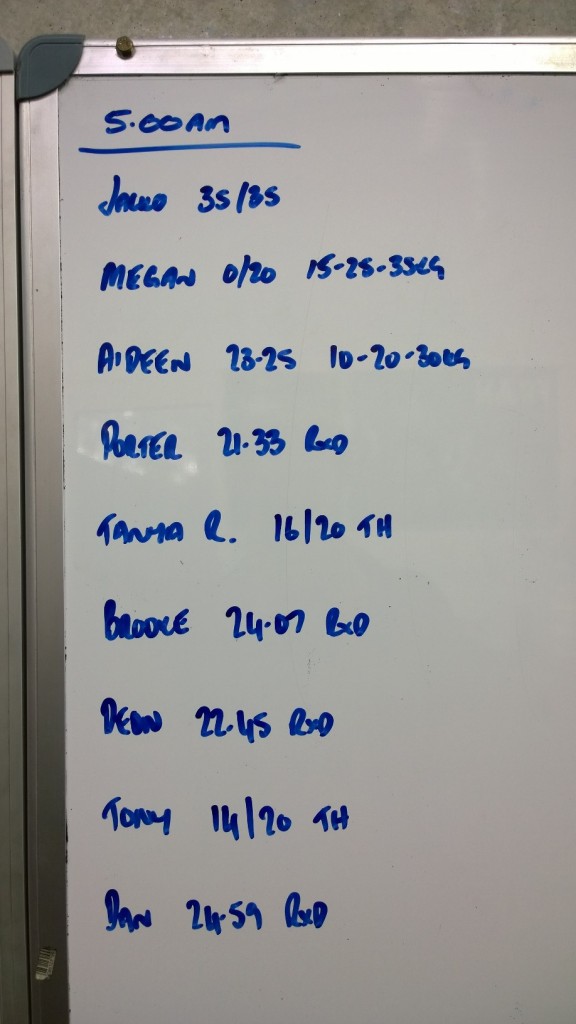 5.00AM
35/35
MEGAN 0/20 15-25-35KG
AIDEEN 23.25 10-20-30KG
PORTER 21.33 RxD
TANYA R. 16/20 TH
BROOKE 24.07 RxD
DEAN 22.45 RxD
TONY 14/20 TH
DAN 24.59 RxD